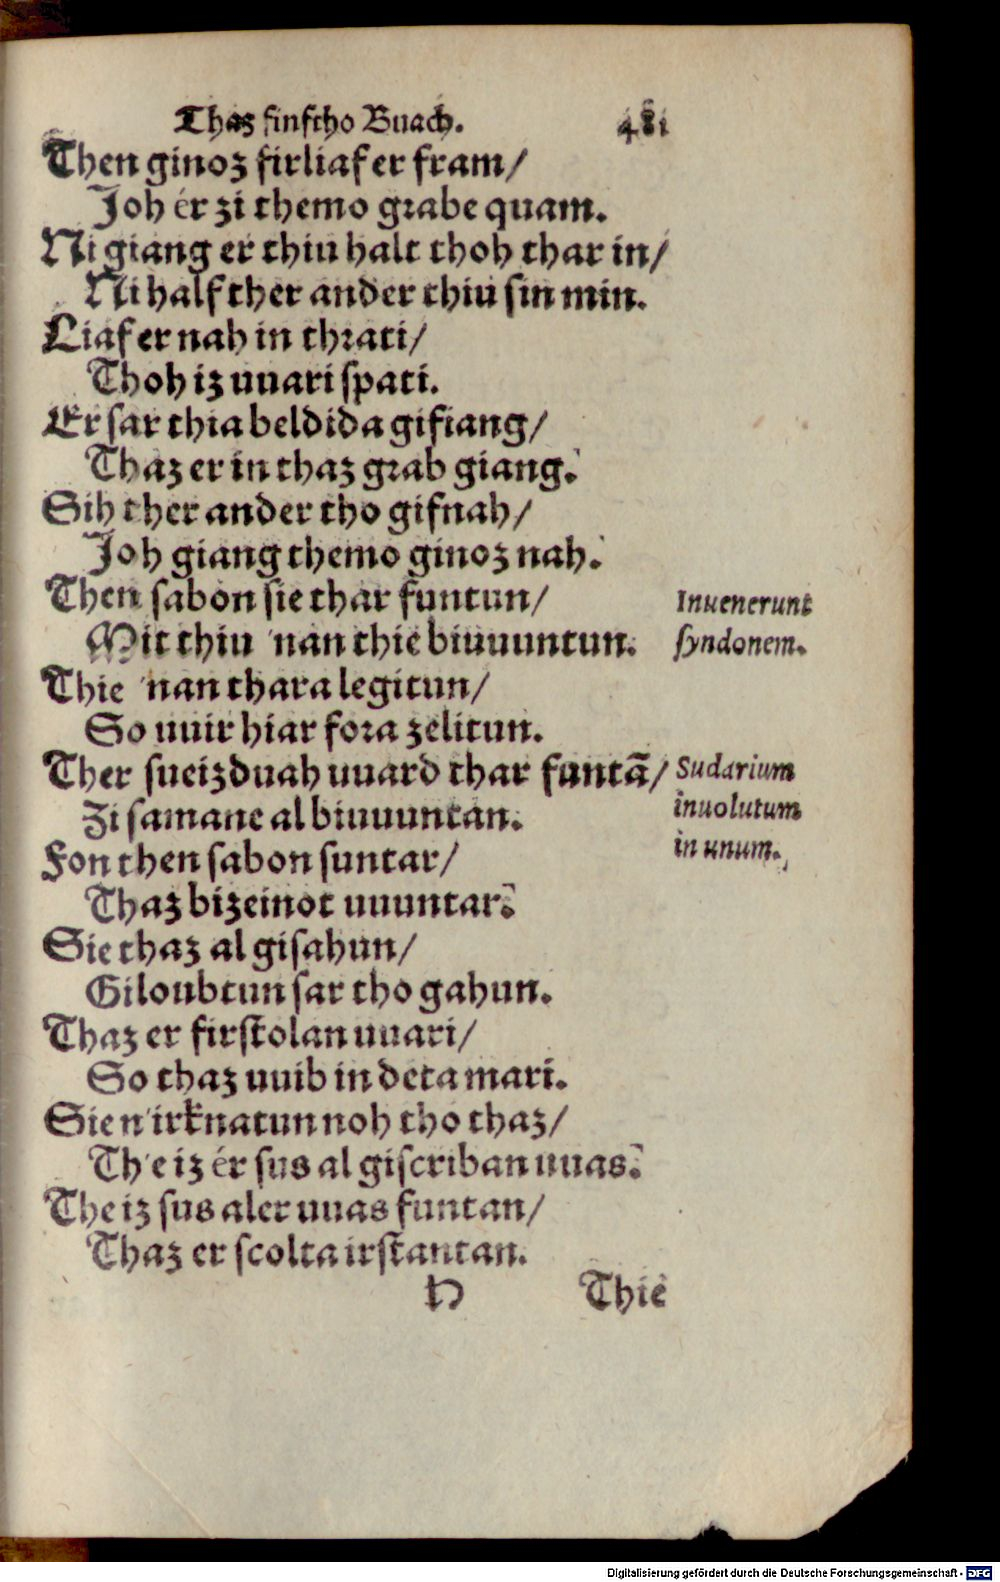 Thaz finftho Buach. 481
Then ginoz firliaf er fram/
Joh ér zi themo grabe quam.
Ni giang er thiu halt thoh thar in/
Ni half ther ander thiu ſin min.
Liaf er nah in thrati/
Thoh iz uuari ſpati.
Er ſar thia beldida gifiang/
Thaz er in thaz grab giang.
Sih ther ander tho gifnah/
Joh giang themo ginoz nah.
Then ſabon ſie thar funtun/
Mit thiu 'nan thie biuuuntun.
Inuenerunt
ſyndonem.
Thie 'nan thara legitun/
So uuir hiar fora zelitun.
Ther ſueizduah uuard thar funtā/
Zi ſamane al biuuuntan.
Sudarium
inuolutum
in unum.
Fon then ſabon ſuntar/
Thaz bizeinot uuuntar.
Sie thaz al giſahun/
Giloubtun ſar tho gahun.
Thaz er firſtolan uuari/
So thaz uuib in deta mari.
Sie n'irknatun noh tho thaz/
Th'e iz ér ſus al giſcriban uuas.
The iz ſus aler uuas funtan/
Thaz er ſcolta irſtantan.
Thie
Digitalisierung gefördert durch die Deutsche Forschungsgemeinschaft - DFG